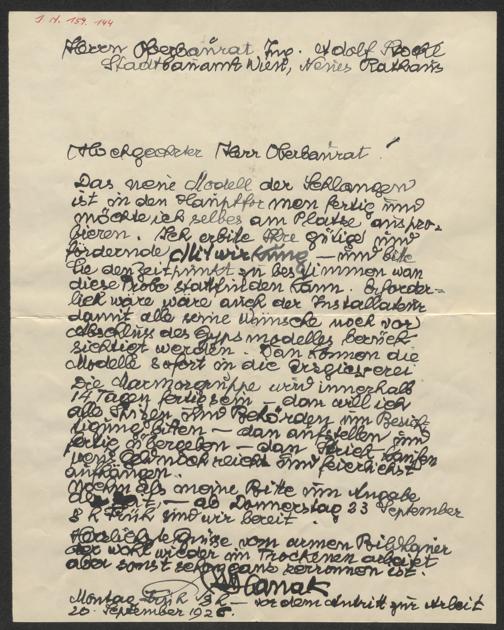 I N. 159.144
Herrn Oberbaurat Ing. Adolf Stockl
Stadtbauamt Wien, Neues Rathaus
Hochgeehrter Herr Oberbaurat!
Das neue Modell der Schlangen
ist in den Hauptformen fertig und
möchte ich selbes am Platze auspro-
bieren. Ich erbite Ihre gütige und
fördernde Mitwirkung – und bitte
Sie den Zeitpunkt zu bestimmen wan
diese Probe statfinden kann. Erforder-
lich wäre wäre auch der Installateur
damit alle seine Wünsche noch vor
Abschluss des Gypsmodelles berück-
sichtigt werden. Dan können die
Modelle sofort in die Erzgiesserei
Die Marmorgruppe wird innerhalb
14 Tagen fertig sein – dan will ich
alle und Behörden um Besich-
tigung bitten – dan aufstellen und
fertig übergeben – dan Strick kaufen
wens Geld noch reicht und feierlichst
aufhängen.
Nochmals meine Bitte um Angabe
der Zeit – ab Donnerstag 23 September
8 h Früh sind wir bereit.
Herzlichste Grüsse vom armen Bildhauer
der wohl wieder im Trockenen arbeitet
aber sonst schon ganz zerronnen ist.
Hanak
Montag Früh 8 h – vor dem Antritt zur Arbeit
20. September 1926.